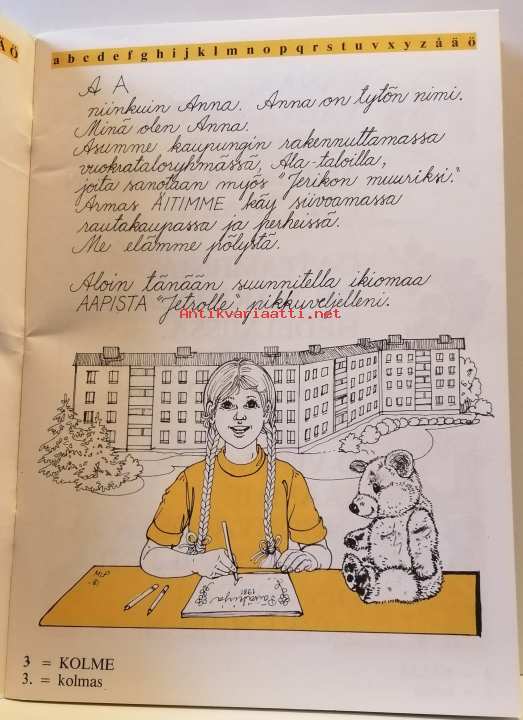 Ä Ö
a b c d e f g h i j k l m n o p q r s t u v x y z å ä ö
A A,
niinkuin Anna. Anna on tytön nimi.
Minä olen Anna.
Asumme kaupungin rakennuttamassa
vuokrataloryhmässä, Ala-taloilla,
joita sanotaan myös "Jerikon muuriksi."
Armas ÄITIMME käy siivoamassa
rautakaupassa ja perheissä.
Me elämme pölystä.
Aloin tänään suunnitella ikiomaa
AAPISTA "Jetsolle", pikkuveljelleni.
Antikvariaatti.net
Päiväkirja
1981
MLP
-81
3 = KOLME
3. = kolmas